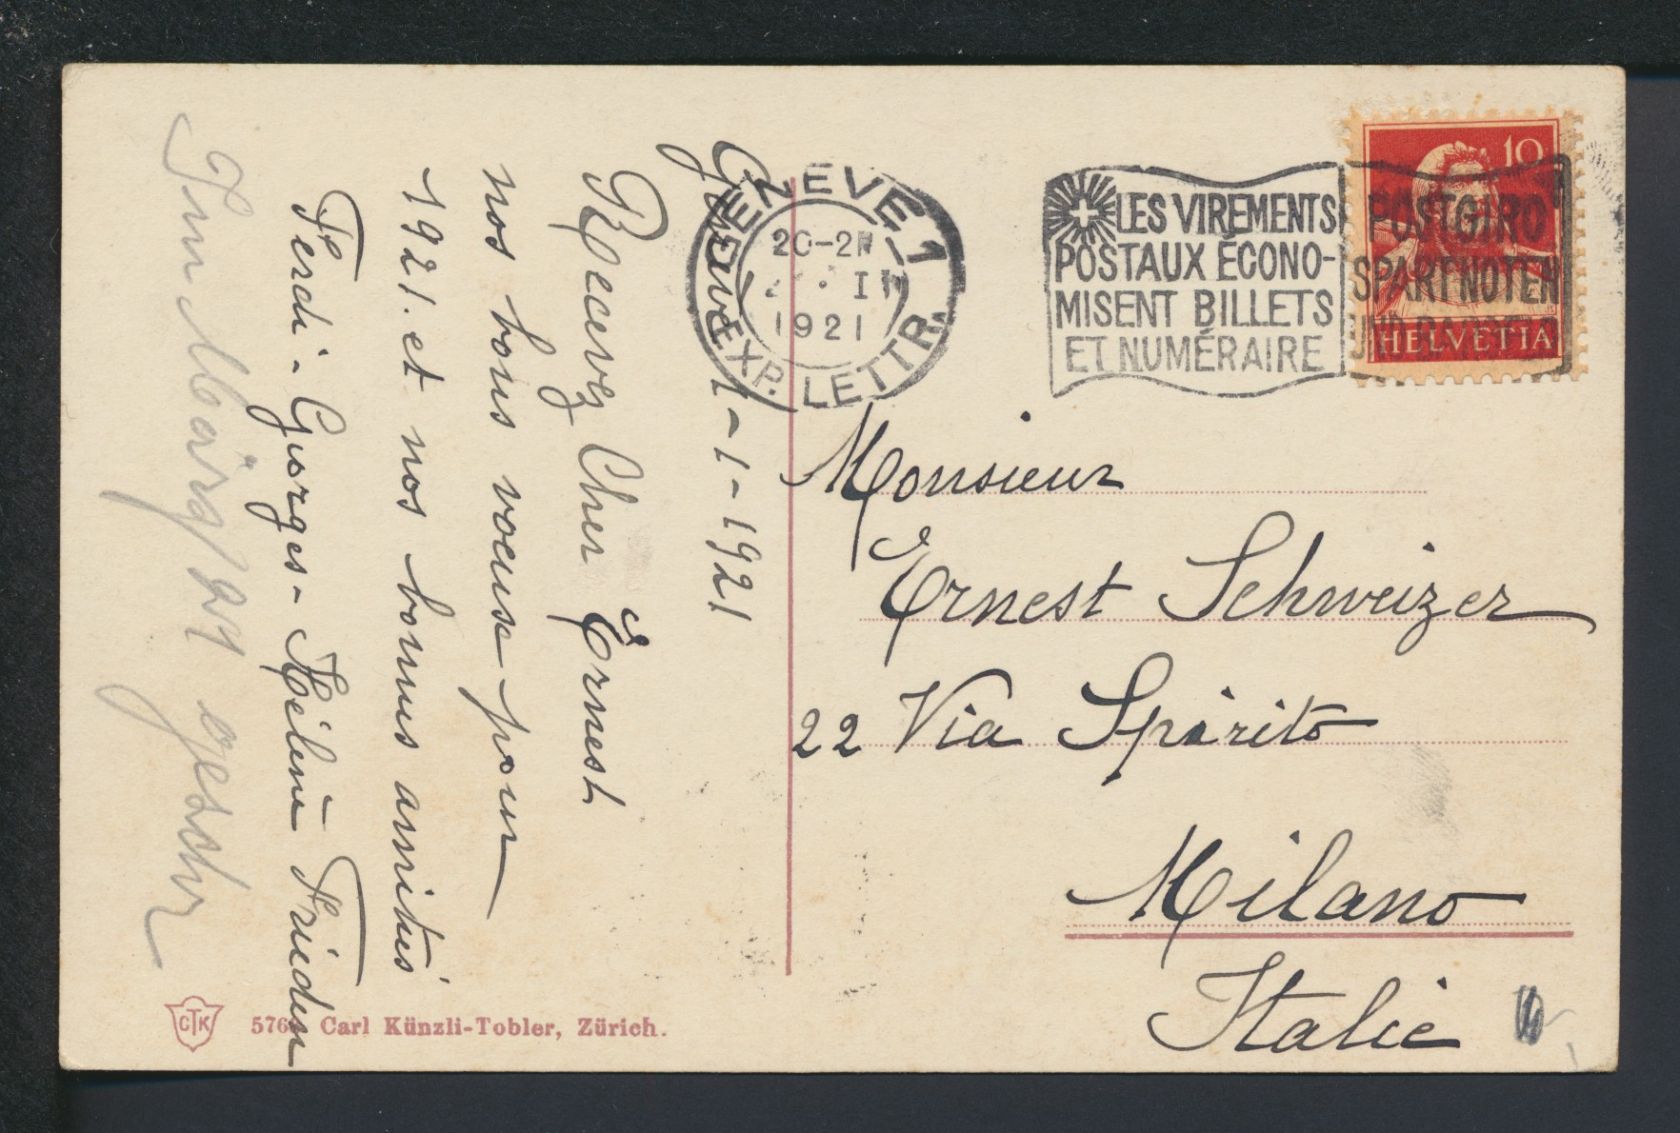 Genève 1-1-1921
Recevez Cher Ernest
nos bons voeuse pour
1921. et nos bonnes amitiés
Ferdi - Georges - Hélène Frieden
geschr
GENEVE_1
20-2
1921
EXP. LETTR.
LES VIREMENTS
POSTAUX ÉCONO-
MISENT BILLETS
ET NUMÉRAIRE
POSTGIRO
SPART NOTEN
UND
10
HELVETIA
Monsieur
Ernest Schweizer
22 Via Spirito
Milano
Italie
CTK
Carl Künzli-Tobler, Zürich.